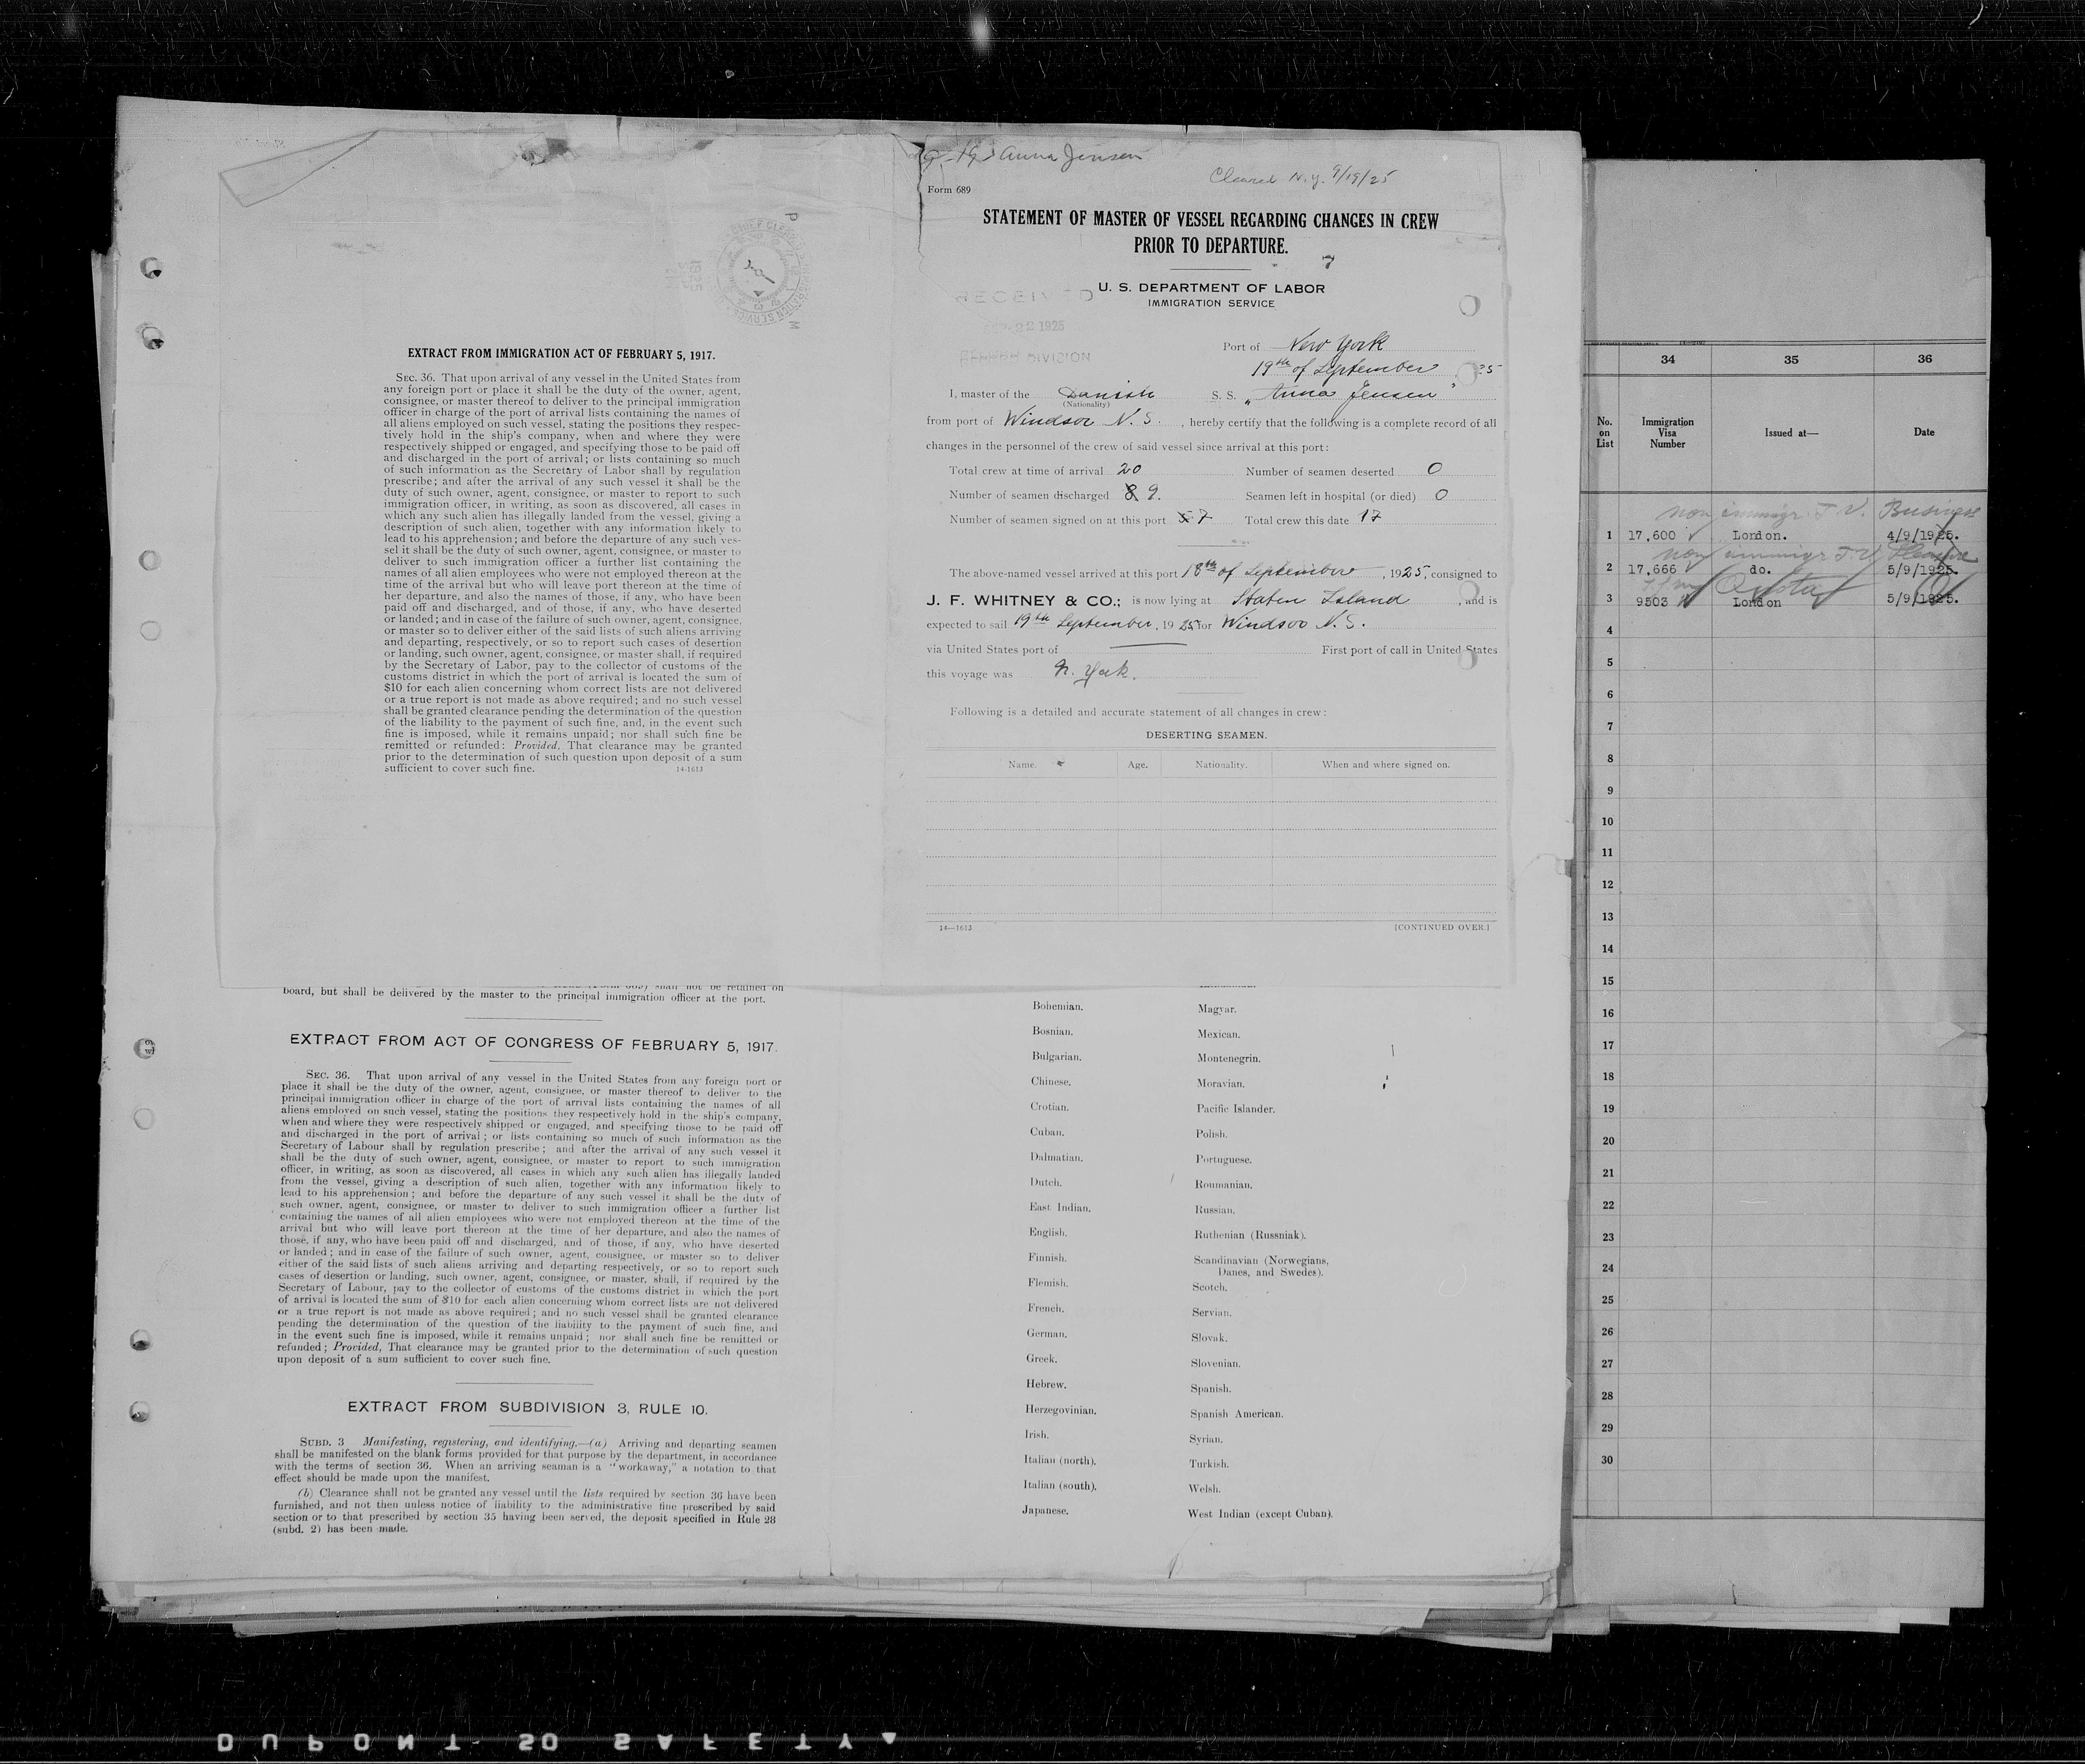 EXTRACT FROM IMMIGRATION ACT OF FEBRUARY 5, 1917.
SEC. 36. That upon arrival of any vessel in the United States from
any foreign port or place it shall be the duty of the owner, agent,
consignee, or master thereof to deliver to the principal immigration
officer in charge of the port of arrival lists containing the names of
all aliens employed on such vessel, stating the positions they respec-
tively hold in the ship's company, when and where they were
respectively shipped or engaged, and specifying those to be paid off
and discharged in the port of arrival; or lists containing so much
of such information as the Secretary of Labor shall by regulation
prescribe; and after the arrival of any such vessel it shall be the
duty of such owner, agent, consignee, or master to report to such
immigration officer, in writing, as soon as discovered, all cases in
which any such alien has illegally landed from the vessel, giving a
description of such alien, together with any information likely to
lead to his apprehension; and before the departure of any such ves-
sel it shall be the duty of such owner, agent, consignee, or master to
deliver to such immigration officer a further list containing the
names of all alien employees who were not employed thereon at the
time of the arrival but who will leave port thereon at the time of
her departure, and also the names of those, if any, who have been
paid off and discharged, and of those, if any, who have deserted
or landed; and in case of the failure of such owner, agent, consignee,
or master so to deliver either of the said lists of such aliens arriving
and departing, respectively, or so to report such cases of desertion
or landing, such owner, agent, consignee, or master shall, if required
by the Secretary of Labor, pay to the collector of customs of the
customs district in which the port of arrival is located the sum of
$10 for each alien concerning whom correct lists are not delivered
or a true report is not made as above required; and no such vessel
shall be granted clearance pending the determination of the question
of the liability to the payment of such fine, and, in the event such
fine is imposed, while it remains unpaid; nor shall such fine be
remitted or refunded: Provided, That clearance may be granted
prior to the determination of such question upon deposit of a sum
sufficient to cover such fine.
14-1613
Anna Jensen
Cleared N.Y. 9/19/25
Form 689
STATEMENT OF MASTER OF VESSEL REGARDING CHANGES IN CREW
PRIOR TO DEPARTURE.
7
U. S. DEPARTMENT OF LABOR
IMMIGRATION SERVICE
RECEIVED
22 1925
DIVISION
Port of New York
19th of September , 25
I, master of the Danish S. S. „ Anna Jensen "
(Nationality)
from port of Windsor N. S. , hereby certify that the following is a complete record of all
changes in the personnel of the crew of said vessel since arrival at this port:
Total crew at time of arrival 20 Number of seamen deserted 0
Number of seamen discharged 8 9. Seamen left in hospital (or died) 0
Number of seamen signed on at this port 5 7 Total crew this date 17
The above-named vessel arrived at this port 18th of September , 1925, consigned to
J. F. WHITNEY & CO.; is now lying at Staten Island , and is
expected to sail 19th September, 1925 for Windsor N. S.
via United States port of First port of call in United States
this voyage was N. York.
Following is a detailed and accurate statement of all changes in crew:
DESERTING SEAMEN.
Name. Age. Nationality. When and where signed on.
14—1613 [CONTINUED OVER.]
34 35 36
No. on List Immigration Visa Number Issued at— Date
non immigr T. V. Business
1 17,600 London. 4/9/1925.
non immigr T V Pleasure
2 17,666 do. 5/9/1925.
Quota
3 9503 London 5/9/1925.
4
5
6
7
8
9
10
11
12
13
14
15
16
17
18
19
20
21
22
23
24
25
26
27
28
29
30
shall not be retained on
board, but shall be delivered by the master to the principal immigration officer at the port.
EXTRACT FROM ACT OF CONGRESS OF FEBRUARY 5, 1917.
SEC. 36. That upon arrival of any vessel in the United States from any foreign port or
place it shall be the duty of the owner, agent, consignee, or master thereof to deliver to the
principal immigration officer in charge of the port of arrival lists containing the names of all
aliens employed on such vessel, stating the positions they respectively hold in the ship's company,
when and where they were respectively shipped or engaged, and specifying those to be paid off
and discharged in the port of arrival; or lists containing so much of such information as the
Secretary of Labour shall by regulation prescribe; and after the arrival of any such vessel it
shall be the duty of such owner, agent, consignee, or master to report to such immigration
officer, in writing, as soon as discovered, all cases in which any such alien has illegally landed
from the vessel, giving a description of such alien, together with any information likely to
lead to his apprehension; and before the departure of any such vessel it shall be the duty of
such owner, agent, consignee, or master to deliver to such immigration officer a further list
containing the names of all alien employees who were not employed thereon at the time of the
arrival but who will leave port thereon at the time of her departure, and also the names of
those, if any, who have been paid off and discharged, and of those, if any, who have deserted
or landed; and in case of the failure of such owner, agent, consignee, or master so to deliver
either of the said lists of such aliens arriving and departing respectively, or so to report such
cases of desertion or landing, such owner, agent, consignee, or master, shall, if required by the
Secretary of Labour, pay to the collector of customs of the customs district in which the port
of arrival is located the sum of $10 for each alien concerning whom correct lists are not delivered
or a true report is not made as above required; and no such vessel shall be granted clearance
pending the determination of the question of the liability to the payment of such fine, and
in the event such fine is imposed, while it remains unpaid; nor shall such fine be remitted or
refunded; Provided, That clearance may be granted prior to the determination of such question
upon deposit of a sum sufficient to cover such fine.
EXTRACT FROM SUBDIVISION 3, RULE 10.
SUBD. 3 Manifesting, registering, and identifying.—(a) Arriving and departing seamen
shall be manifested on the blank forms provided for that purpose by the department, in accordance
with the terms of section 36. When an arriving seaman is a "workaway," a notation to that
effect should be made upon the manifest.
(b) Clearance shall not be granted any vessel until the lists required by section 36 have been
furnished, and not then unless notice of liability to the administrative fine prescribed by said
section or to that prescribed by section 35 having been served, the deposit specified in Rule 28
(subd. 2) has been made.
Bohemian. Magyar.
Bosnian. Mexican.
Bulgarian. Montenegrin.
Chinese. Moravian.
Crotian. Pacific Islander.
Cuban. Polish.
Dalmatian. Portuguese.
Dutch. Roumanian.
East Indian. Russian.
English. Ruthenian (Russniak).
Finnish. Scandinavian (Norwegians,
Danes, and Swedes).
Flemish. Scotch.
French. Servian.
German. Slovak.
Greek. Slovenian.
Hebrew. Spanish.
Herzegovinian. Spanish American.
Irish. Syrian.
Italian (north). Turkish.
Italian (south). Welsh.
Japanese. West Indian (except Cuban).
DUPONT SO SAFETY